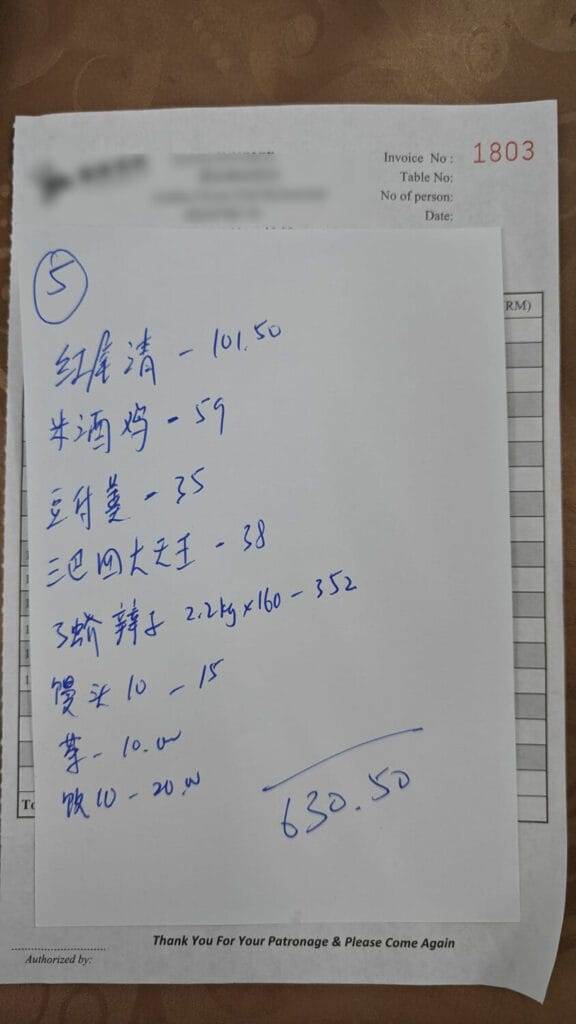 Invoice No: 1803
Table No:
No of person:
Date:
RM)
5
红尾清 - 101.50
米酒鸡 - 59
豆付羹 - 35
三巴四大天王 - 38
3 辣子 2.2kg×160 - 352
馒头10 - 15
茶 - 10.00
饭10 - 20.00
630.50
To
Thank You For Your Patronage & Please Come Again
Authorized by: